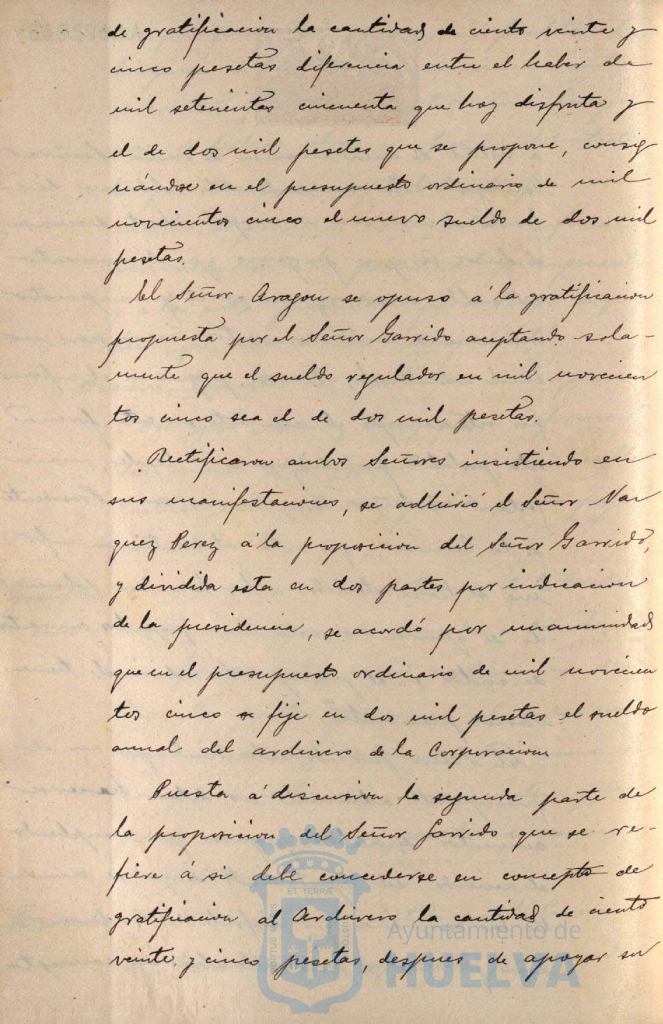 de gratificacion la cantidad de ciento veinte y
cinco pesetas diferencia entre el haber de
mil setecientas cincuenta que hoy disfruta y
el de dos mil pesetas que se propone, consig
nándose en el presupuesto ordinario de mil
novecientos cinco el nuevo sueldo de dos mil
pesetas.
El Señor Aragon se opuso á la gratificacion
propuesta por el Señor Garrido aceptando sola-
mente que el sueldo regulador en mil novecien
tos cinco sea el de dos mil pesetas.
Rectificaron ambos Señores insistiendo en
sus manifestaciones, se adhirió el Señor Vaz
quez Perez á la proposicion del Señor Garrido,
y dividida esta en dos partes por indicacion
de la presidencia, se acordó por unanimidad
que en el presupuesto ordinario de mil novecien
tos cinco se fije en dos mil pesetas el sueldo
anual del archivero de la Corporacion
Puesta á discusion la segunda parte de
la proposicion del Señor Garrido que se re-
fiere á si debe concederse en concepto de
gratificacion al Archivero la cantidad de ciento
veinte y cinco pesetas, despues de apoyar su
ET TERRÆ
Ayuntamiento de
HUELVA